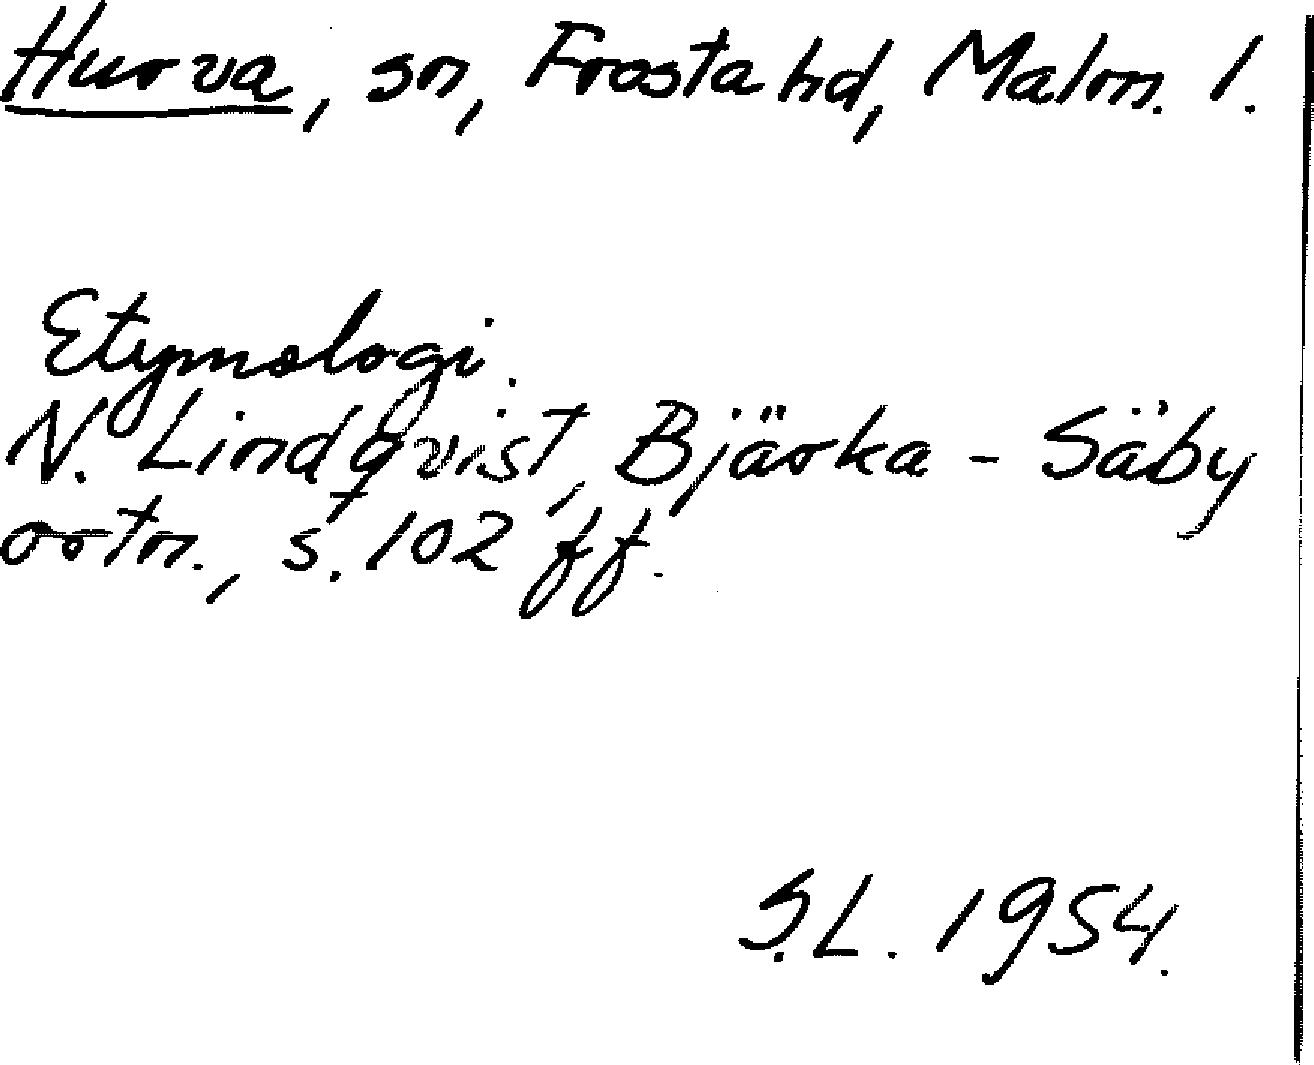 Hurva, sn, Frosta hd, Malm. l.
Etymologi.
N. Lindqvist, Bjärka-Säby
ortn., s. 102 ff.
S.L. 1954.